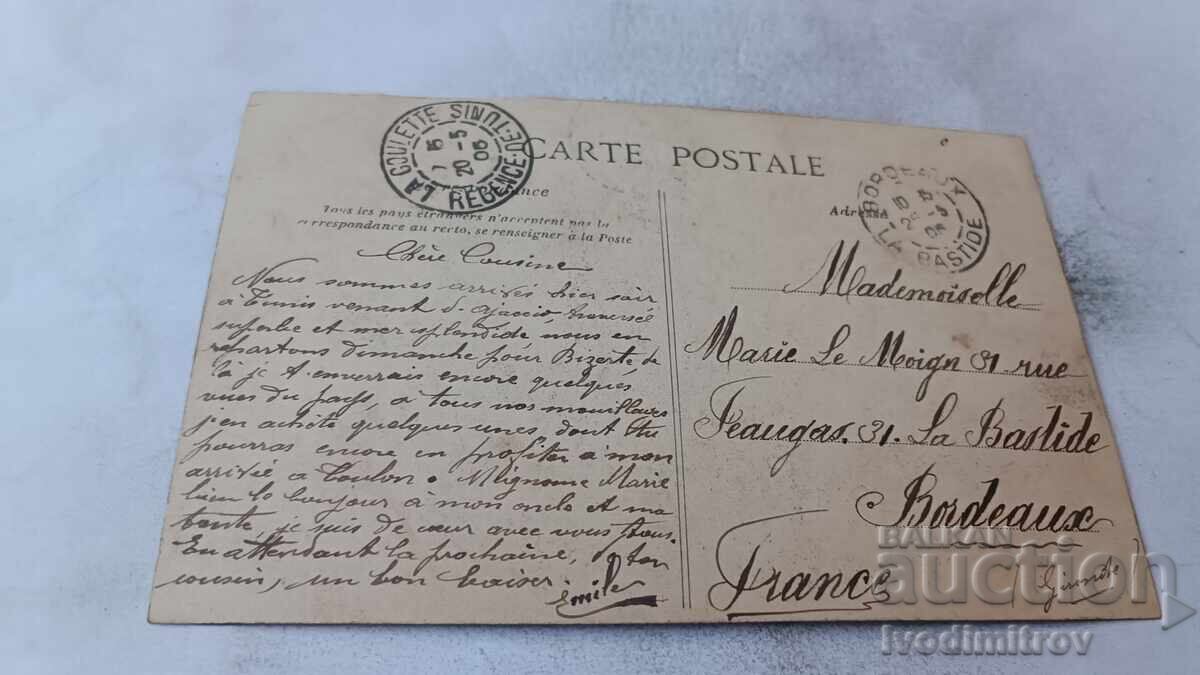 CARTE POSTALE
LA GOULETTE TUNIS
20-5
06
REGENCE-DE-TUNIS
BORDEAUX
LA BASTIDE
Adresse
Tous les pays étrangers n'acceptent pas la
correspondance au recto, se renseigner à la Poste
Chère Cousine
Nous sommes arrivés hier soir
à Tunis venant d'Ajaccio, traversée
superbe et mer splendide nous en
repartons dimanche pour Bizerte, de
là je t'enverrais encore quelques
vues du pays, à tous nos mouillages
j'en achète quelques unes dont tu
pourras encore en profiter à mon
arrivée à Toulon. Mignonne Marie
bien le bonjour à mon oncle et ma
tante, je suis de cœur avec vous tous.
En attendant la prochaine, ton
cousin, un bon baiser.
Emile
Mademoiselle
Marie Le Moign 31 rue
Feaugas. 31. La Bastide
Bordeaux
France
Gironde
BALKAN
auction
ivodimitrov